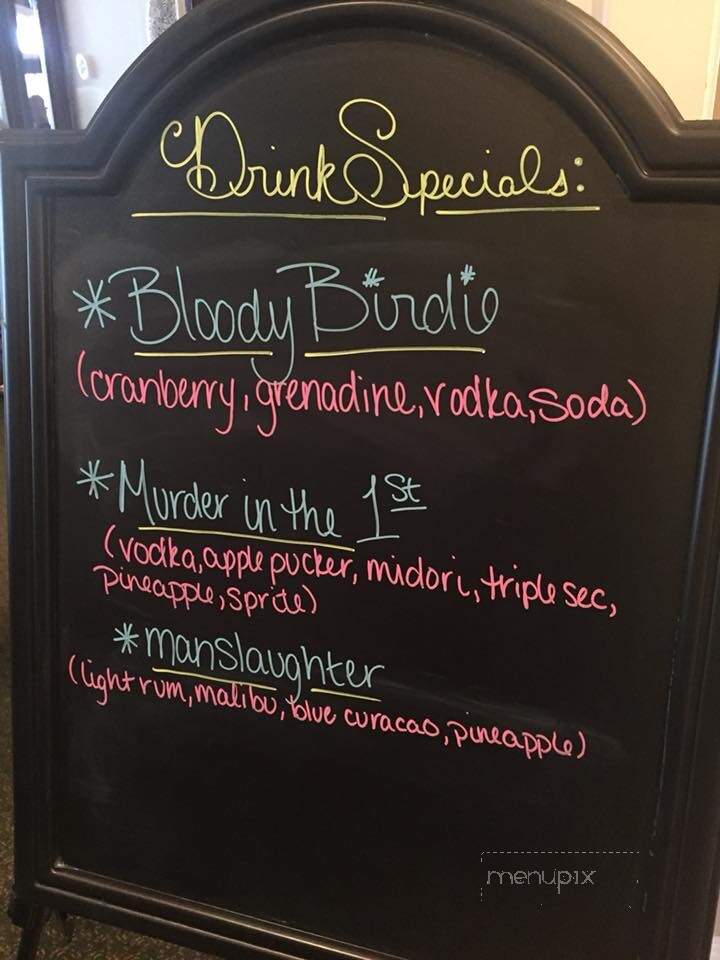 Drink Specials:
*Bloody Birdie
(cranberry, grenadine, vodka, soda)
*Murder in the 1st
(vodka, apple pucker, midori, triple sec,
pineapple, sprite)
*manslaughter
(light rum, malibu, blue curacao, pineapple)
menupix